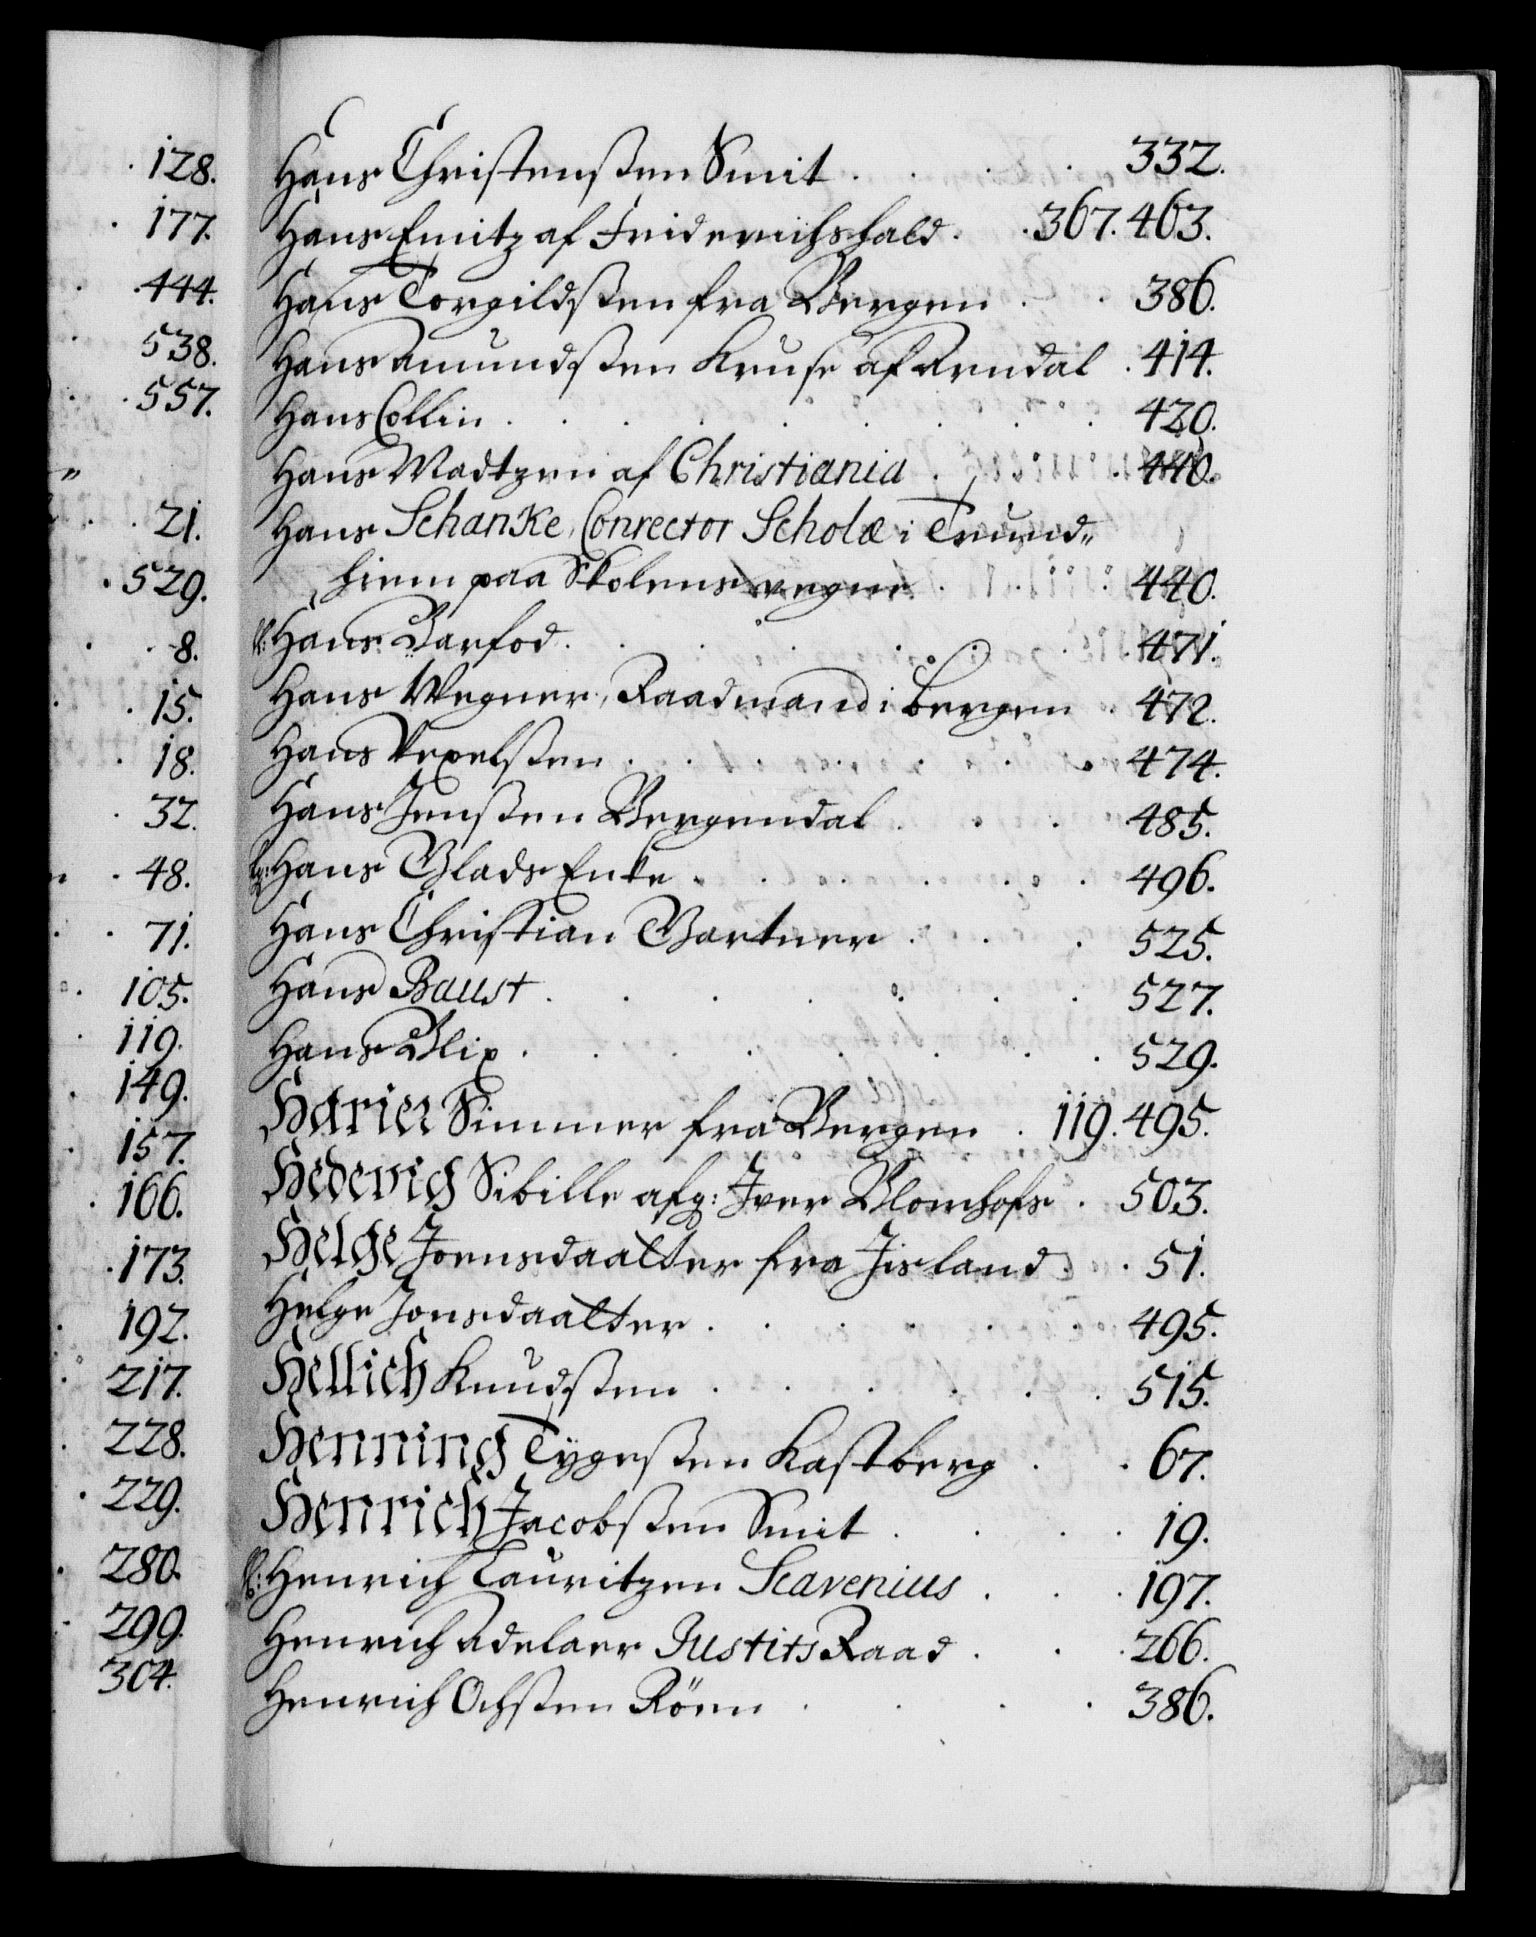 128.
177.
444.
538.
557.
21.
529.
8.
15.
18.
32.
48.
71.
105.
119.
149.
157.
166.
173.
192.
217.
228.
229.
280.
299.
304.
Hans Christensßen Smit . . . 332.
Hans Emitz af Friderichshald . . 367. 463.
Hans Torgildsßen fra Bergen . . 386.
Hans Amundsßen Kruse af Arndal . 414.
Hans Collin . . . . . . . . 420.
Hans Madtzen af Christiania . . 440.
Hans Schanke, Conrector Scholæ i Trund„
hiem paa Skolens vegne . . . 440.
Hans Barfod . . . . . . 471.
Hans Wegner, Raadmand i bergen . 472.
Hans Pexelsßen . . . . . . 474.
Hans Jensßen Bergendal . . . 485.
Hans Glads Enke . . . . . 496.
Hans Christian Gartner . . . 525.
Hans Baust . . . . . . . 527.
Hans Blix . . . . . . . . 529.
Harien Simmer fra Bergen . 119. 495.
Hedevich Sibille afg: Iver Blomhofs . 503.
Helge Joensdaatter fra Jisland . . 51.
Helge Jonsdaatter . . . . . 495.
Hellich Knudsßen . . . . . . 515.
Henning Tygesßen Kastberg . . 67.
Henrich Jacobsßen Smit . . . . 19.
Henrich Lauritzen Scavenius . . . 197.
Henrich Adelaer Justits Raad . . . 266.
Henrich Ochsßen Röen . . . . 386.